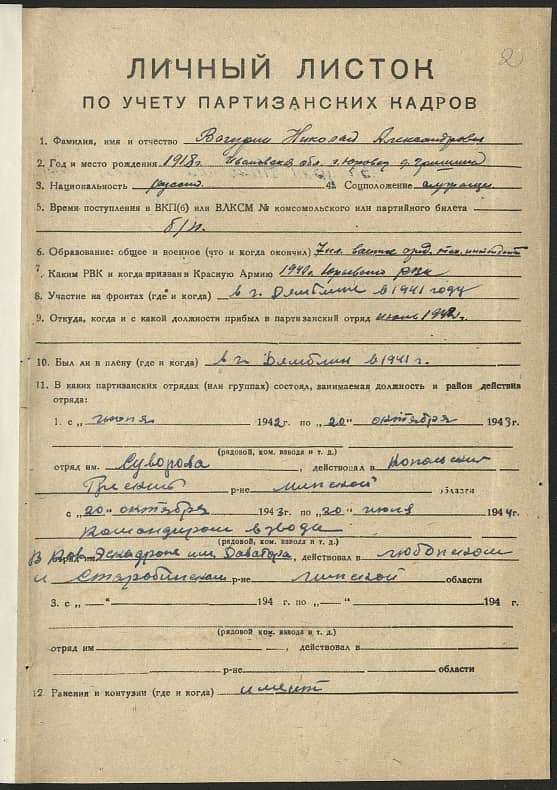 2
ЛИЧНЫЙ ЛИСТОК
ПО УЧЕТУ ПАРТИЗАНСКИХ КАДРОВ
1. Фамилия, имя и отчество Николай Александрович
2. Год и место рождения 1918г. Ивановская обл. г. д.
3. Национальность русский 4. Соцположение служащий
5. Время поступления в ВКП(б) или ВЛКСМ № комсомольского или партийного билета
б/п.
6. Образование: общее и военное (что и когда окончил) 7 кл.
7. Каким РВК и когда призван в Красную Армию 1940г. рвк
8. Участие на фронтах (где и когда) в г. Дямблин в 1941 году
9. Откуда, когда и с какой должности прибыл в партизанский отряд июнь 1942г.
10. Был ли в плену (где и когда) в г. Дямблин в 1941 г.
11. В каких партизанских отрядах (или группах) состоял, занимаемая должность и район действия
отряда:
1. с „ июня 1942г. по „20“ октября 1943г.
(рядовой, ком. взвода и т. д.)
отряд им. Суворова, действовал в Копольский
Гресский р-не минской области
с „20“ октября 1943г. по „20“ июля 1944г.
командиром взвода
(рядовой, ком. взвода и т. д.)
В Кав. Эскадроне им. Доватора, действовал в любонском
и Старобинском р-не минской области
3. с „—“ 194 г. по „—“ 194 г.
(рядовой ком. взвода и т. д.)
отряд им , действовал в
р-не области
12. Ранения и контузии (где и когда)